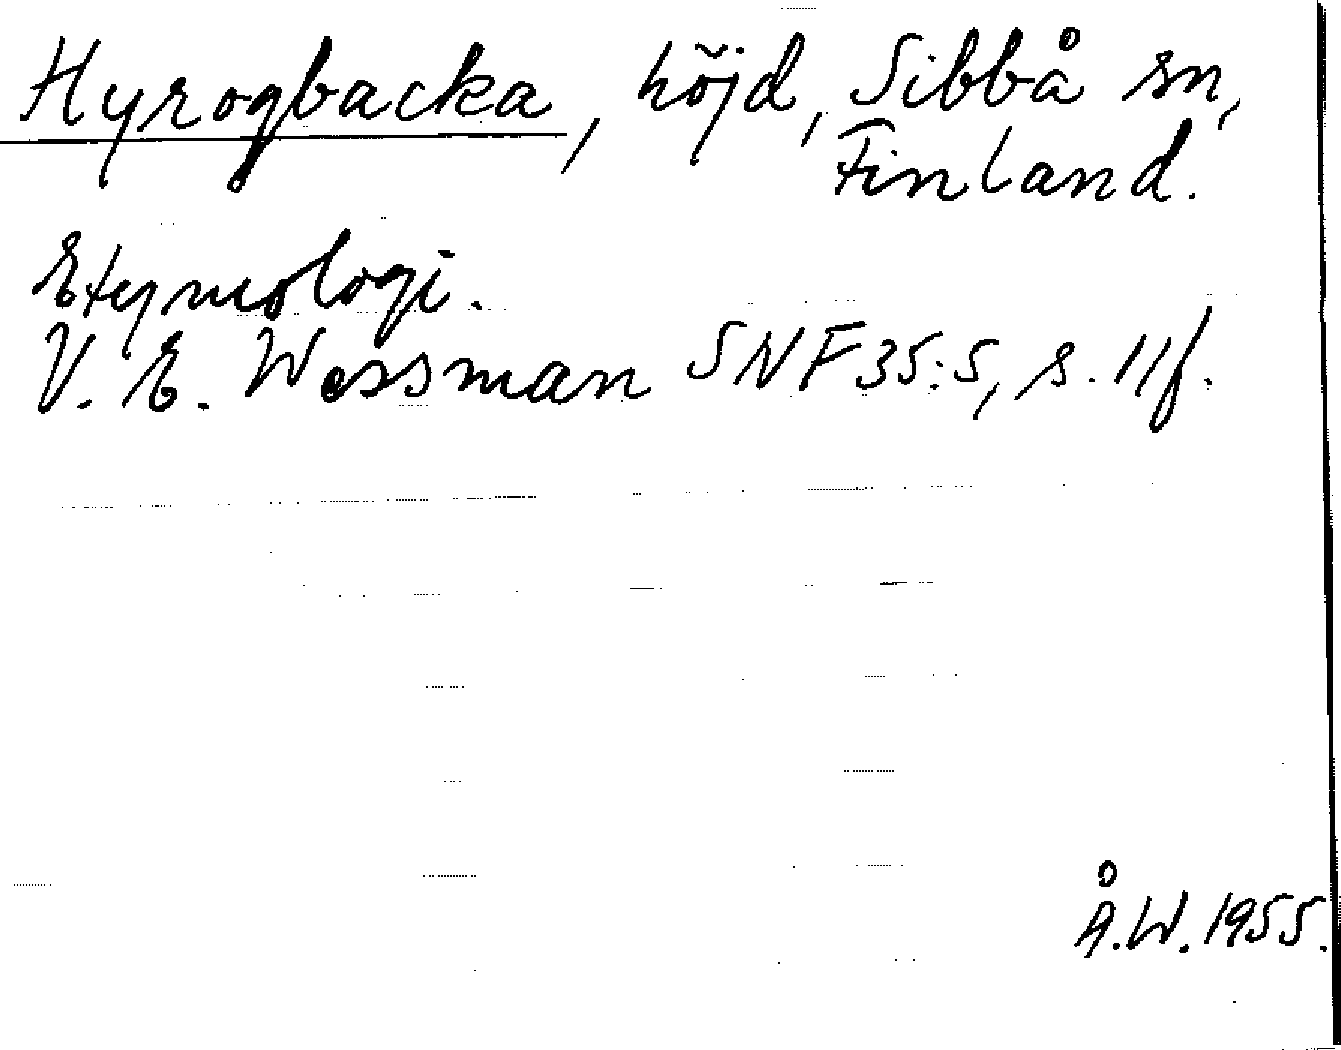 Hyrogbacka, höjd, Sibbå sn,
Finland.
Etymologi.
V. E. Wessman SNF 35:5, s. 11f.
Å.W. 1955.